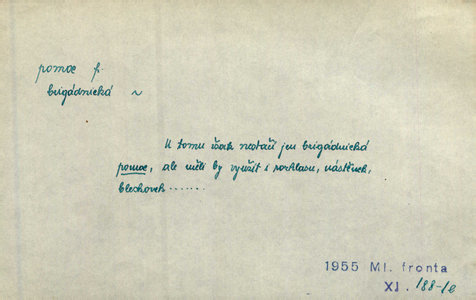 pomoc f.
brigádnická ~
K tomu však nestačí jen brigádnická
pomoc, ale měli by využít i rozhlasu, nástěnek,
bleskovek.......
1955 Ml. fronta
XI. 188-1e